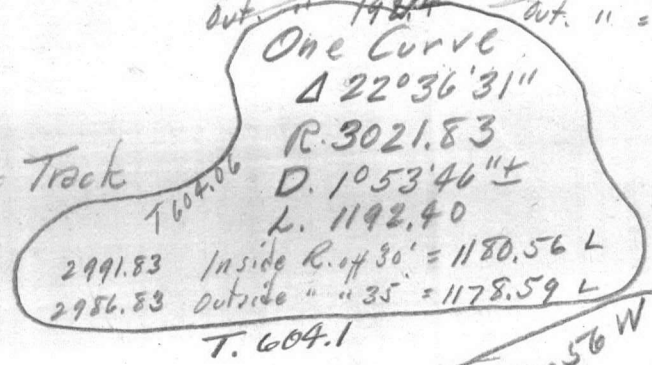 Out. " 198.4 Out. " =
One Curve
Δ 22°36'31"
R. 3021.83
Track D. 1°53'46"±
T 604.06 L. 1192.40
2991.83 Inside R. off 30' = 1180.56 L
2986.83 Outside " " 35' = 1178.59 L
T. 604.1
.56 W